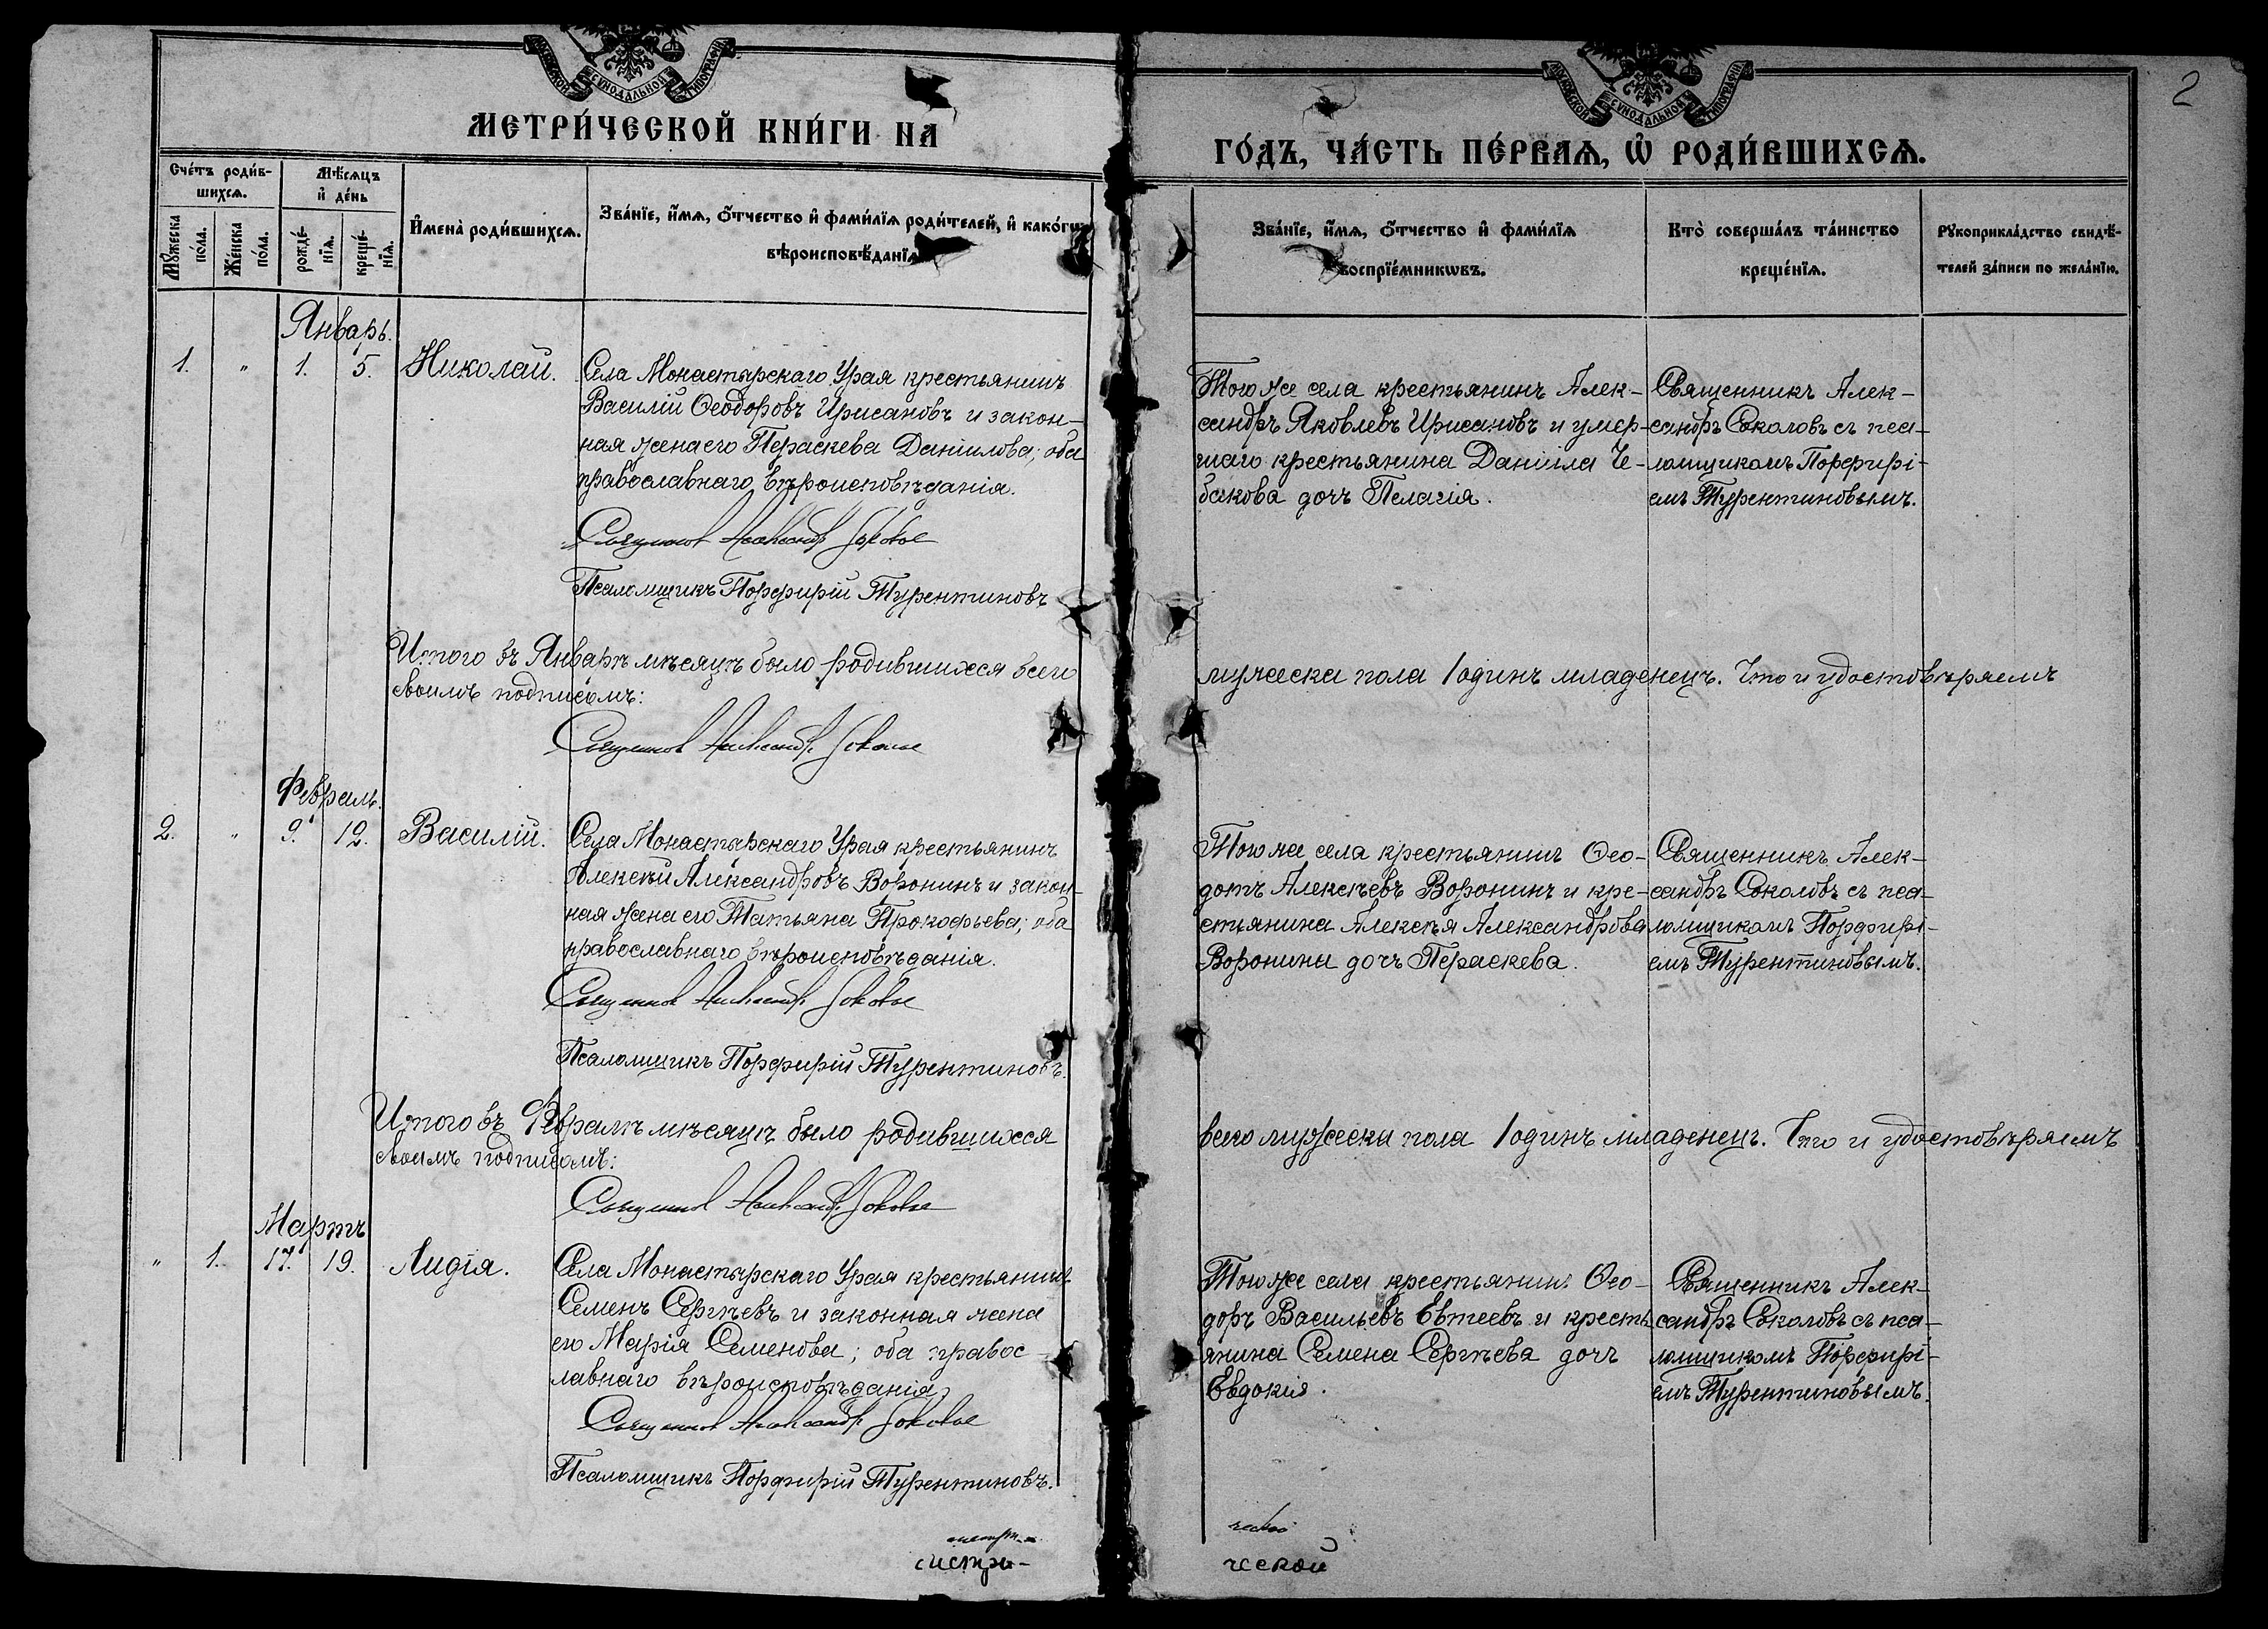 МОСКОВСКОЙ СѴНОДАЛЬНОЙ ТИПОГРАФІИ
МЕТРИ́ЧЕСКОЙ КНИ́ГИ НА
Сче́тъ роди́в-
шихсѧ.
Мѣ́сѧцъ
и҆ де́нь
Мꙋ́жеска
по́ла.
Же́нска
по́ла.
рожде́-
нїѧ.
креще́-
нїѧ.
И҆мена̀ роди́вшихсѧ.
Зва́нїе, и҆́мѧ, ѻ҆́тчество и҆ фами́лїѧ роди́телей, и҆ како́гѡ
вѣроисповѣ́данїѧ
Январь.
1. „ 1. 5. Николай.
Села Монастырскаго Урая крестьянинъ
Василій Ѳеодоровъ Ирисановъ и закон-
ная жена его Параскева Даніилова; оба
православнаго вѣроисповѣданія.
Священникъ Александръ Соколовъ
Псаломщикъ Порфирій Турентиновъ
Итого въ Январѣ мѣсяцѣ было родившихся всего
своимъ подписомъ:
Священникъ Александръ Соколовъ
Февраль.
2. „ 9. 12. Василій.
Села Монастырскаго Урая крестьянинъ
Алексѣй Александровъ Воронинъ и закон-
ная жена его Татьяна Прокофьева; оба
православнаго вѣроисповѣданія.
Священникъ Александръ Соколовъ
Псаломщикъ Порфирій Турентиновъ.
Итого въ Февралѣ мѣсяцѣ было родившихся
своимъ подписомъ:
Священникъ Александръ Соколовъ
Мартъ
„ 1. 17. 19. Лидія.
Села Монастырскаго Урая крестьянинъ
Семенъ Сергѣевъ и законная жена
его Марія Семенова; оба правос-
лавнаго вѣроисповѣданія.
Священникъ Александръ Соколовъ
Псаломщикъ Порфирій Турентиновъ.
метри-
2
МОСКОВСКОЙ СѴНОДАЛЬНОЙ ТИПОГРАФІИ
ГО́ДЪ, ЧА́СТЬ ПЕ́РВАѦ, Ѡ҆ РОДИ́ВШИХСѦ.
Зва́нїе, и҆́мѧ, ѻ҆́тчество и҆ фами́лїѧ
воспрїе́мникѡвъ.
Кто̀ соверша́лъ та́инство
креще́нїѧ.
Рꙋкоприкла́дство свидѣ́-
телей за́писи по жела́нїю.
Того же села крестьянинъ Алек-
сандръ Яковлевъ Ирисановъ и умер-
шаго крестьянина Даніила Че-
бакова дочь Пелагія.
Священникъ Алек-
сандръ Соколовъ съ пса-
ломщикомъ Порфирі-
емъ Турентиновымъ.
мужеска пола 1 одинъ младенецъ. Что и удостовѣряемъ
Того же села крестьянинъ Ѳео-
дотъ Алексѣевъ Воронинъ и кре-
стьянина Алексѣя Александрова
Воронина дочь Параскева.
Священникъ Алек-
сандръ Соколовъ съ пса-
ломщикомъ Порфирі-
емъ Турентиновымъ.
всего мужеска пола 1 одинъ младенецъ. Что и удостовѣряемъ
Того же села крестьянинъ Ѳео-
доръ Васильевъ Евтеевъ и кресть-
янина Семена Сергѣева дочь
Евдокія.
Священникъ Алек-
сандръ Соколовъ съ пса-
ломщикомъ Порфирі-
емъ Турентиновымъ.
ческой